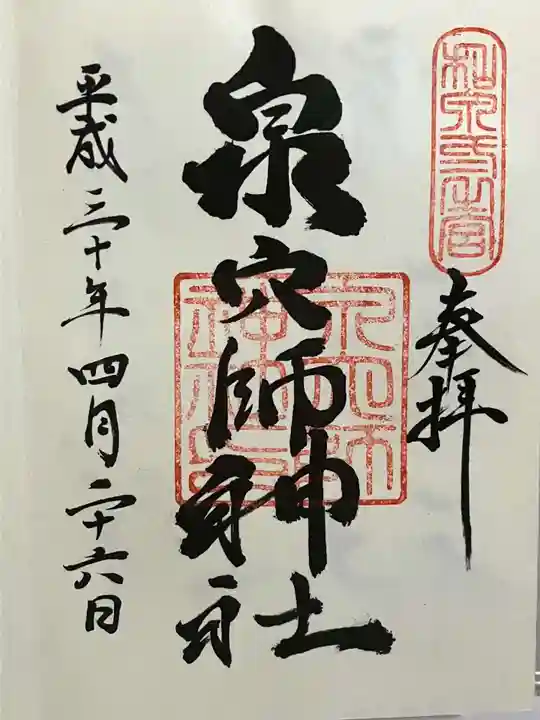 和泉二之宮
奉拝
泉穴師神社
平成三十年四月二十六日